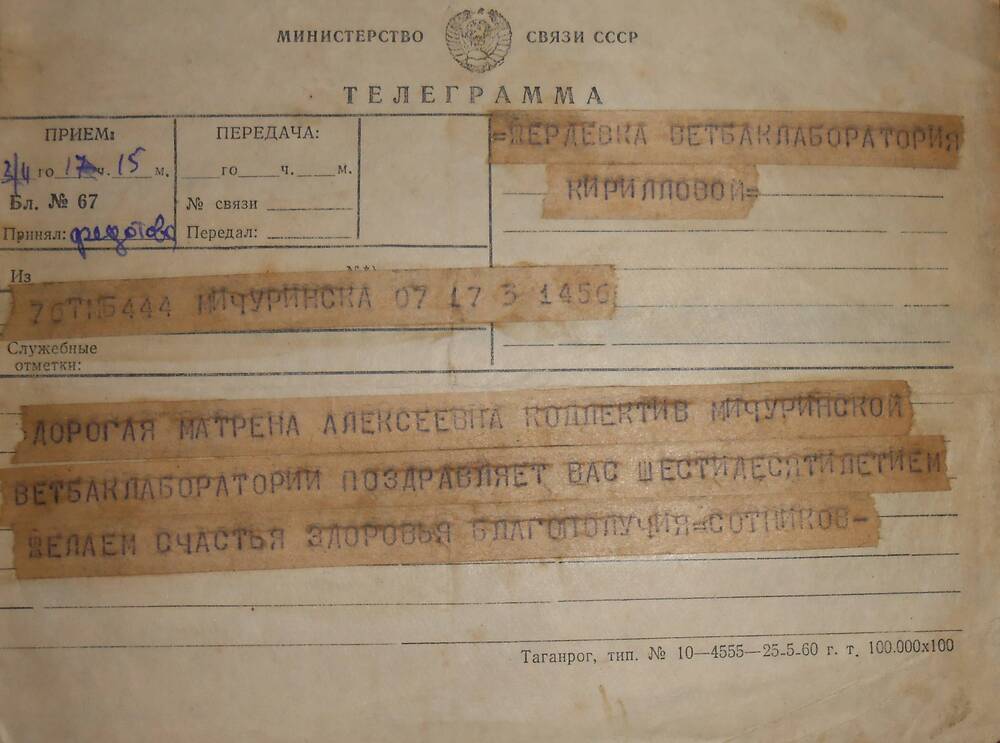 МИНИСТЕРСТВО СВЯЗИ СССР
ТЕЛЕГРАММА
ПРИЕМ:
3/4 го 17 ч. 15 м.
Бл. № 67
Принял: Федотова
ПЕРЕДАЧА:
го ч. м.
№ связи
Передал:
=ЖЕРДЕВКА ВЕТБАКЛАБОРАТОРИЯ
КИРИЛЛОВОЙ=
Из
76ТМБ444 МИЧУРИНСКА 07 17 3 1456
Служебные
отметки:
ДОРОГАЯ МАТРЕНА АЛЕКСЕЕВНА КОЛЛЕКТИВ МИЧУРИНСКОЙ
ВЕТБАКЛАБОРАТОРИИ ПОЗДРАВЛЯЕТ ВАС ШЕСТИДЕСЯТИЛЕТИЕМ
ЖЕЛАЕМ СЧАСТЬЯ ЗДОРОВЬЯ БЛАГОПОЛУЧИЯ=СОТНИКОВ-
Таганрог, тип. № 10—4555—25-5-60 г. т. 100.000х100